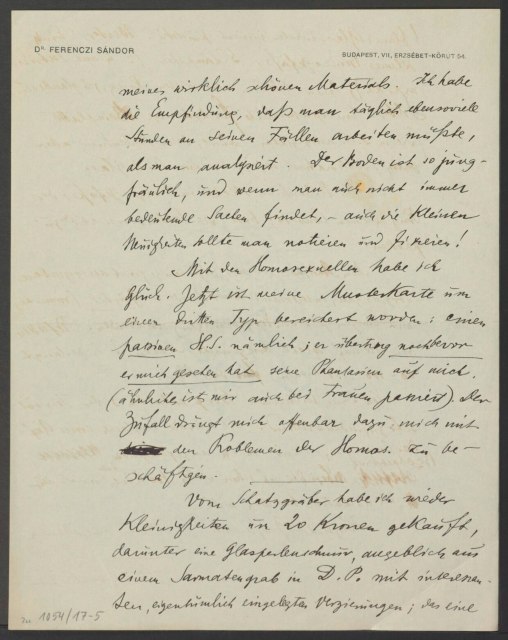 Dr. FERENCZI SÁNDOR
BUDAPEST, VII., ERZSÉBET-KÖRUT 54.
meines wirklich schönen Materials. Ich habe
die Empfindung, daß man täglich ebensoviele
Stunden an seinen Fällen arbeiten müßte,
als man analysiert. Der Boden ist so jung-
fräulich, und wenn man auch nicht immer
bedeutende Sachen findet, – auch die kleinen
Neuigkeiten sollte man notieren und fixieren!
Mit den Homosexuellen habe ich
Glück. Jetzt ist meine Musterkarte um
einen dritten Typ bereichert worden: einen
passiven H.S. nämlich; er übertrug noch bevor
er mich gesehen hat seine Phantasien auf mich.
(ähnliches ist mir auch bei Frauen passiert). Der
Zufall drängt mich offenbar dazu, mich mit
den Problemen der Homos. zu be-
schäftigen.
Vom Schatzgräber habe ich wieder
Kleinigkeiten um 20 Kronen gekauft,
darunter eine Glasperlenschnur, angeblich aus
einem Sarmatengrab in D.P. mit interessan-
ten, eigentümlich eingelegten Verzierungen; das eine
zu 1054/17-5